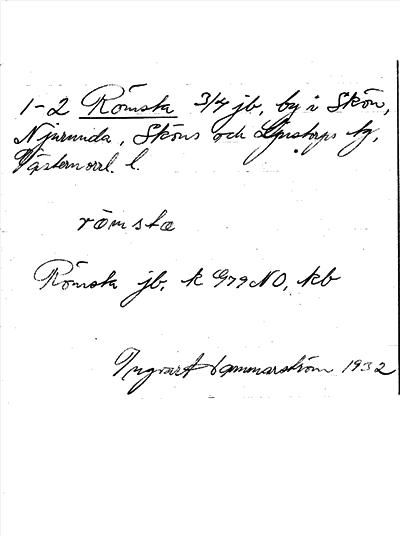 1-2 Römsta 3/4 jb, by i Skön,
Njurunda, Sköns och Ljustorps tg,
Västernorrl. l.
römsta
Römsta jb, k G79 NO, kb
Ingvart Hammarström 1932